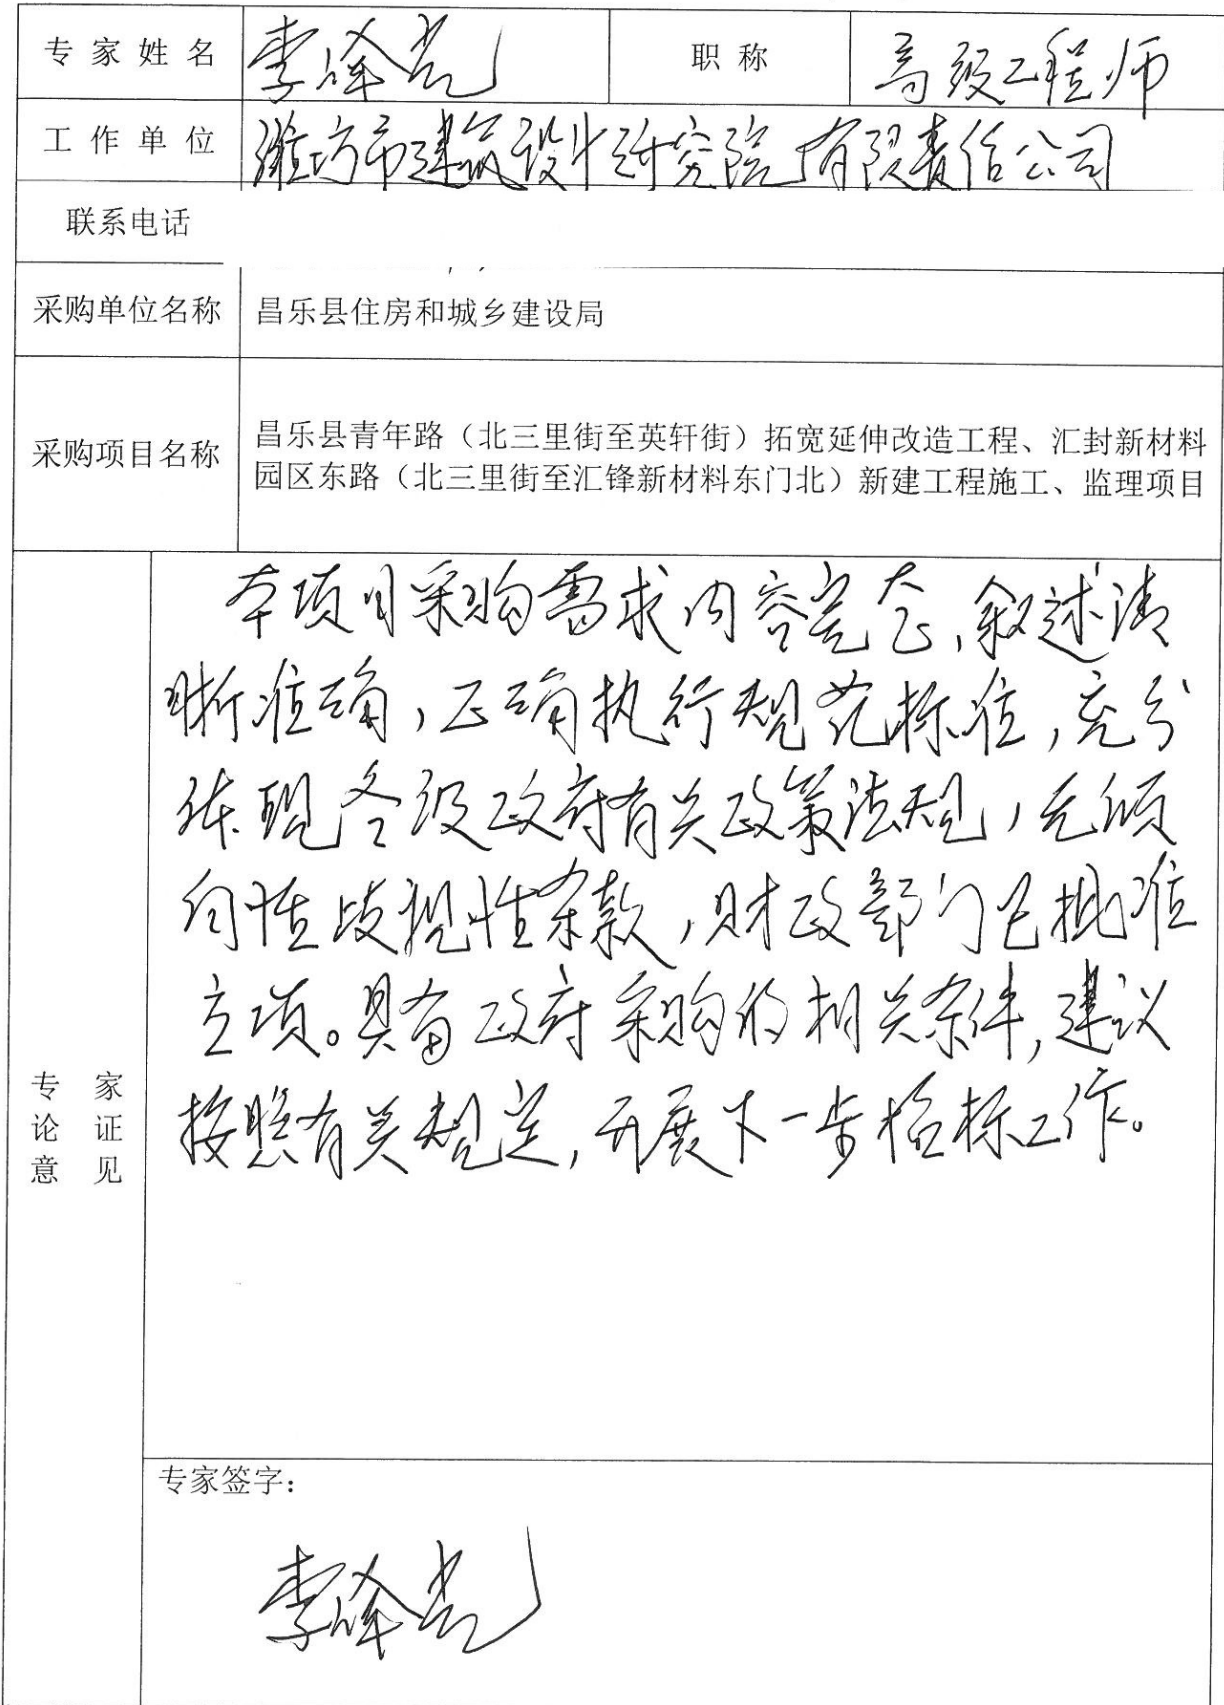 专家姓名 李峰光 职称 高级工程师
工作单位 潍坊市建筑设计研究院有限责任公司
联系电话
采购单位名称 昌乐县住房和城乡建设局
采购项目名称 昌乐县青年路（北三里街至英轩街）拓宽延伸改造工程、汇封新材料
园区东路（北三里街至汇锋新材料东门北）新建工程施工、监理项目
本项目采购需求内容完整，叙述清
晰准确，正确执行规范标准，充分
体现各级政府有关政策法规，无倾
向性歧视性条款，财政部门已批准
立项。具备政府采购的相关条件，建议
按照有关规定，开展下一步招标工作。
专家
论证
意见
专家签字：
李峰光